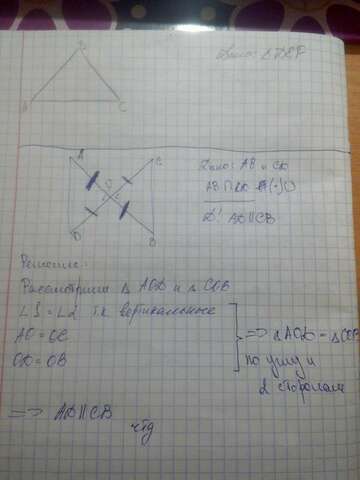 Дано: △DEF
B
C
A
C
O
D
B
Дано: AB и CD
AB ∩ CD (·)O
D: AD||CB
Решение:
Рассмотрим △ AOD и △ COB
∠1 = ∠2 т.к вертикальные
AO = OC
OD = OB
=> △AOD = △COB
по углу и
2 сторонам
=> AD||CB
чтд